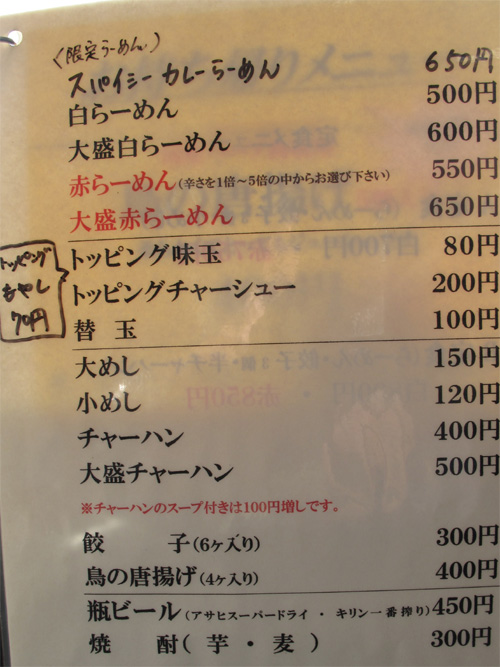 〈限定らーめん〉
スパイシーカレーらーめん 650円
白らーめん 500円
大盛白らーめん 600円
赤らーめん(辛さを1倍〜5倍の中からお選び下さい) 550円
大盛赤らーめん 650円
トッピング味玉 80円
トッピングチャーシュー 200円
替玉 100円
トッピング
もやし
70円
大めし 150円
小めし 120円
チャーハン 400円
大盛チャーハン 500円
※チャーハンのスープ付きは100円増しです。
餃子(6ヶ入り) 300円
鳥の唐揚げ(4ヶ入り) 400円
瓶ビール(アサヒスーパードライ・キリン一番搾り) 450円
焼酎(芋・麦) 300円